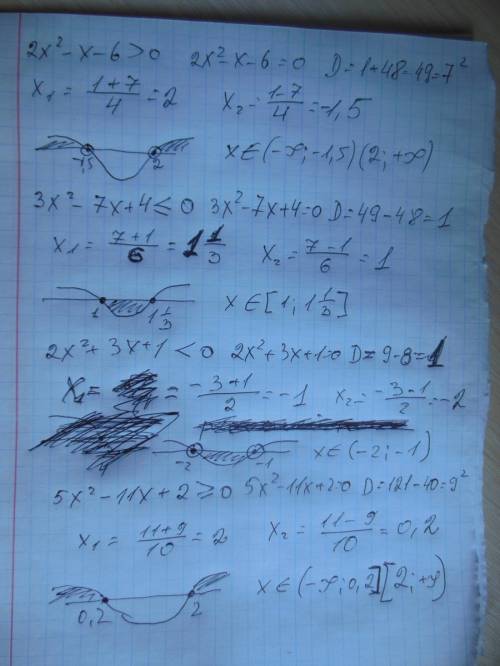 2x² - x - 6 > 0 2x² - x - 6 = 0 D = 1 + 48 = 49 = 7²
x₁ = (1+7)/4 = 2 x₂ = (1-7)/4 = -1,5
-1,5 2 x ∈ (-∞; -1,5) (2; +∞)
3x² - 7x + 4 ≤ 0 3x² - 7x + 4 = 0 D = 49 - 48 = 1
x₁ = (7+1)/6 = 1 1/3 x₂ = (7-1)/6 = 1
1 1 1/3 x ∈ [1; 1 1/3]
2x² + 3x + 1 < 0 2x² + 3x + 1 = 0 D = 9 - 8 = 1
x₁ = = (-3+1)/2 = -1 x₂ = (-3-1)/2 = -2
-2 -1 x ∈ (-2; -1)
5x² - 11x + 2 ≥ 0 5x² - 11x + 2 = 0 D = 121 - 40 = 9²
x₁ = (11+9)/10 = 2 x₂ = (11-9)/10 = 0,2
0,2 2 x ∈ (-∞; 0,2] [2; +∞)